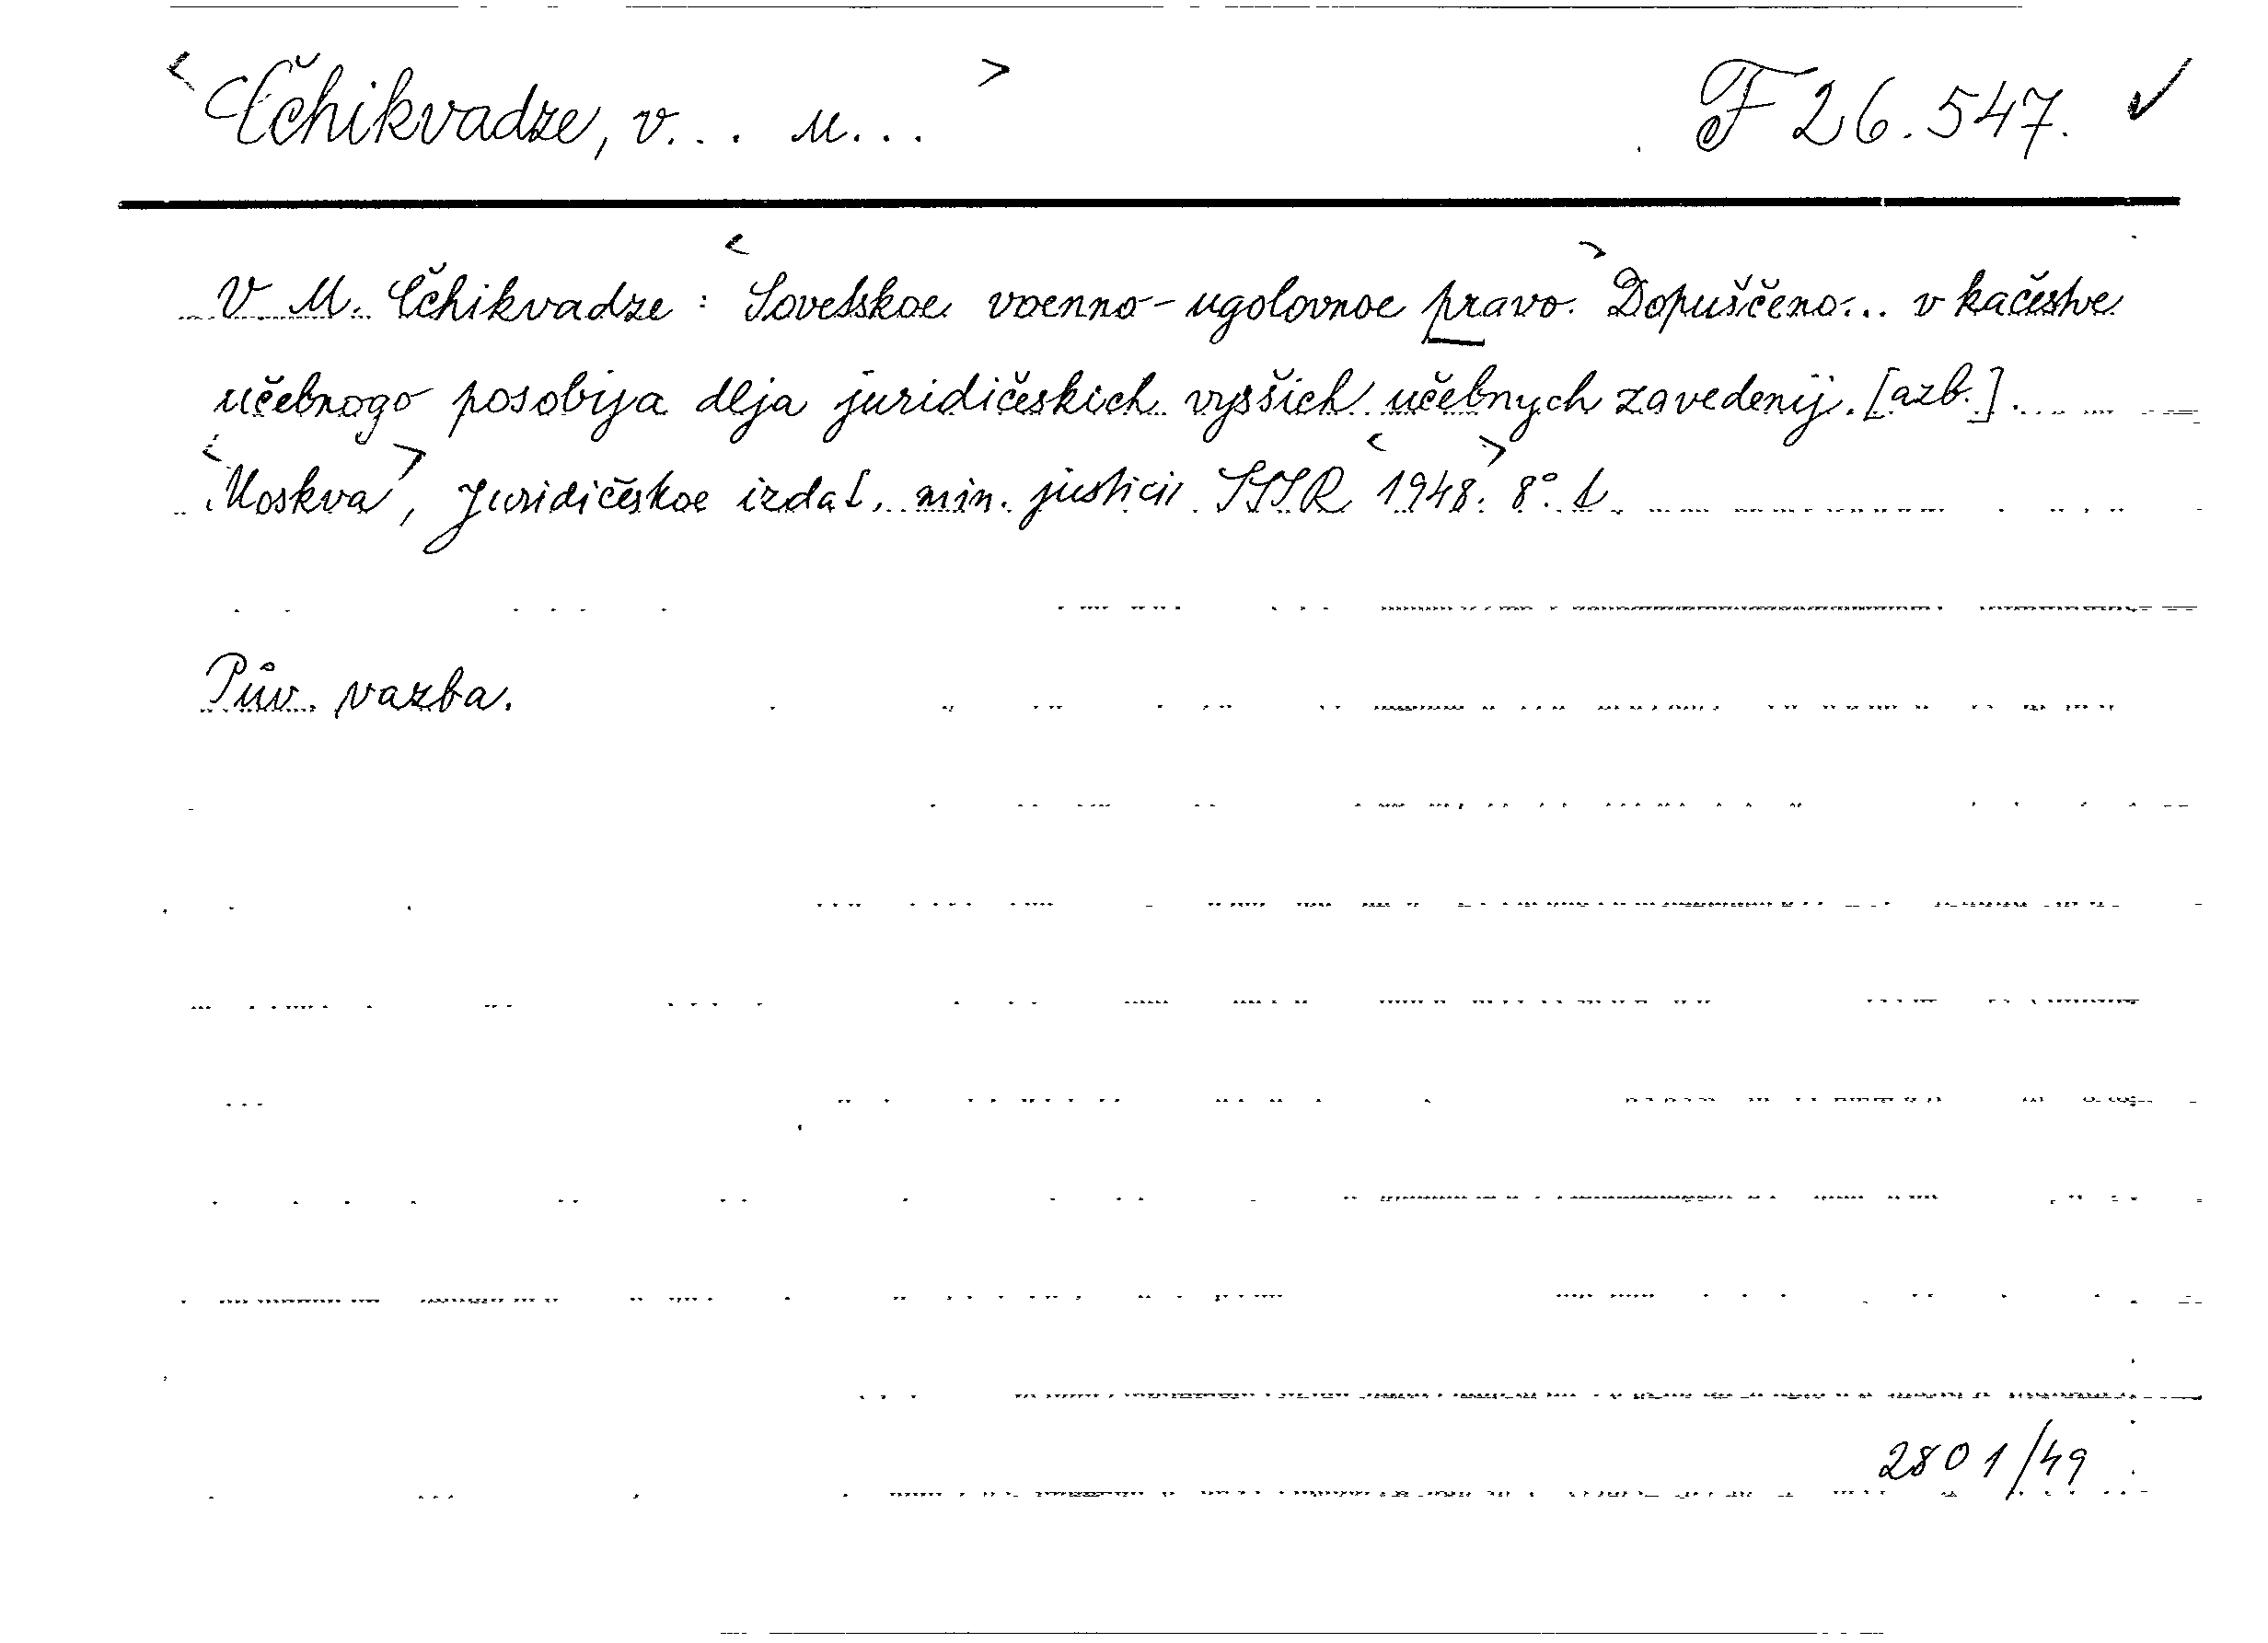 <Čchikvadze, V... M...> F 26.547. ✓
V. M. Čchikvadze: <Sovetskoe voenno-ugolovnoe pravo.> Dopuščeno... v kačestve
učebnogo posobija dlja juridičeskich vysšich učebnych zavedenij. [azb.].
<Moskva>, Juridičeskoe izdat. min. justicii SSSR <1948.> 8°.
Pův. vazba.
2801/49